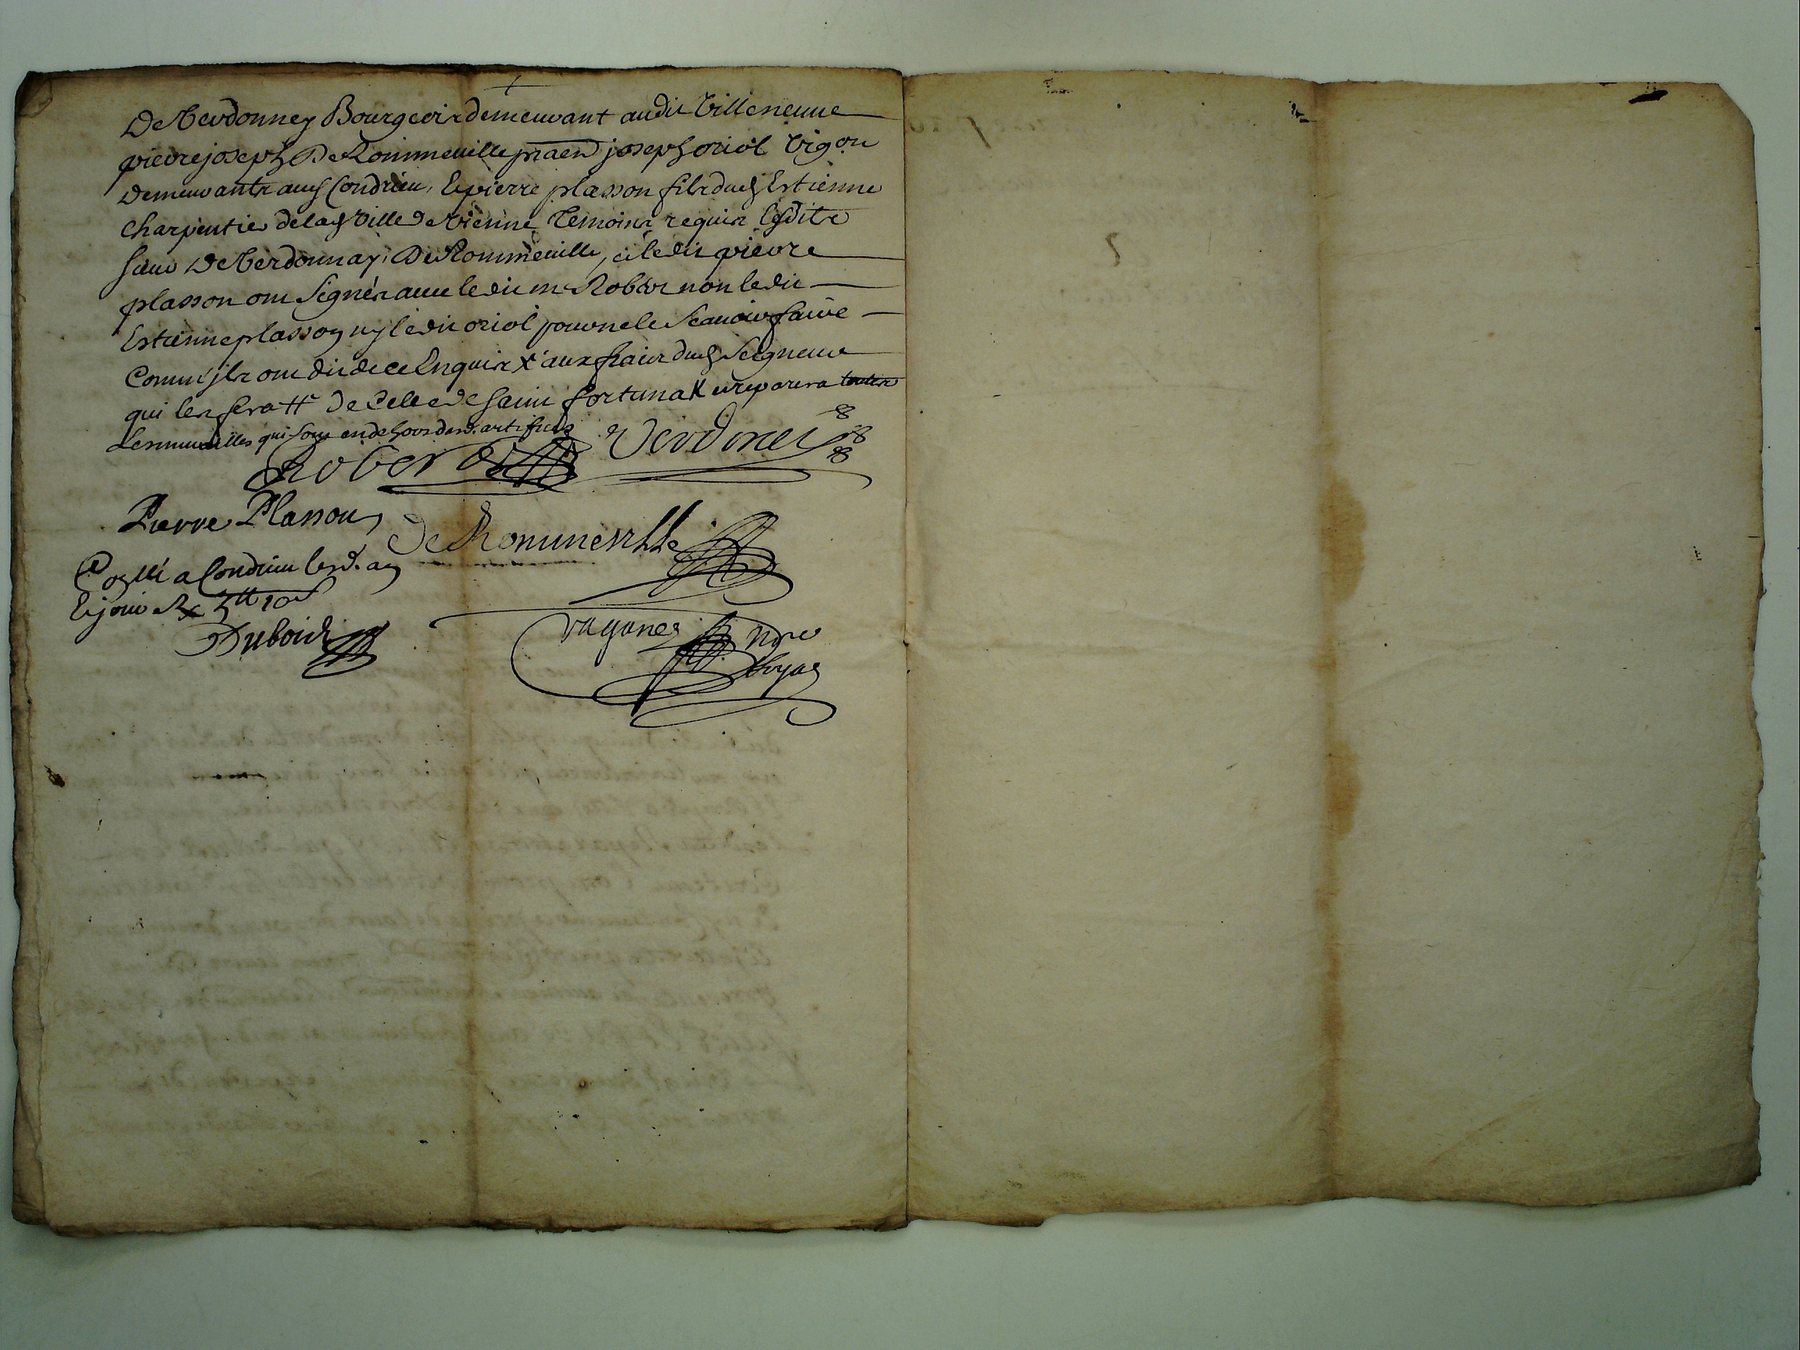 De Verdonney Bourgeois demeurant audit Villeneuve
pierre joseph De Rommeuille joseph oriol Vigon
demeurants aud Condrieu, Et pierre plasson fils dud Estienne
Charpentier de lad Ville de Vienne Temoins requis Lesdits
sieur De Verdonnay, De Rommeuille, et ledit pierre
plasson ont signés avec ledit mr Robert non ledit
Estienne plasson ny ledit oriol pour ne le scauoir faire
Comm'jls ont dit de ce Enquis X aux frais dud Seigneur
qui les fera # de Celle de saint fortunat X et reparera toutes
Les murailles qui sont en dehors des artifices
Robert Verdonei
Pierre Plasson de Rommeville
a Condrieu Les d. an
Et jour Rx 3tt 10s
Duboids
raganes nore
Royal